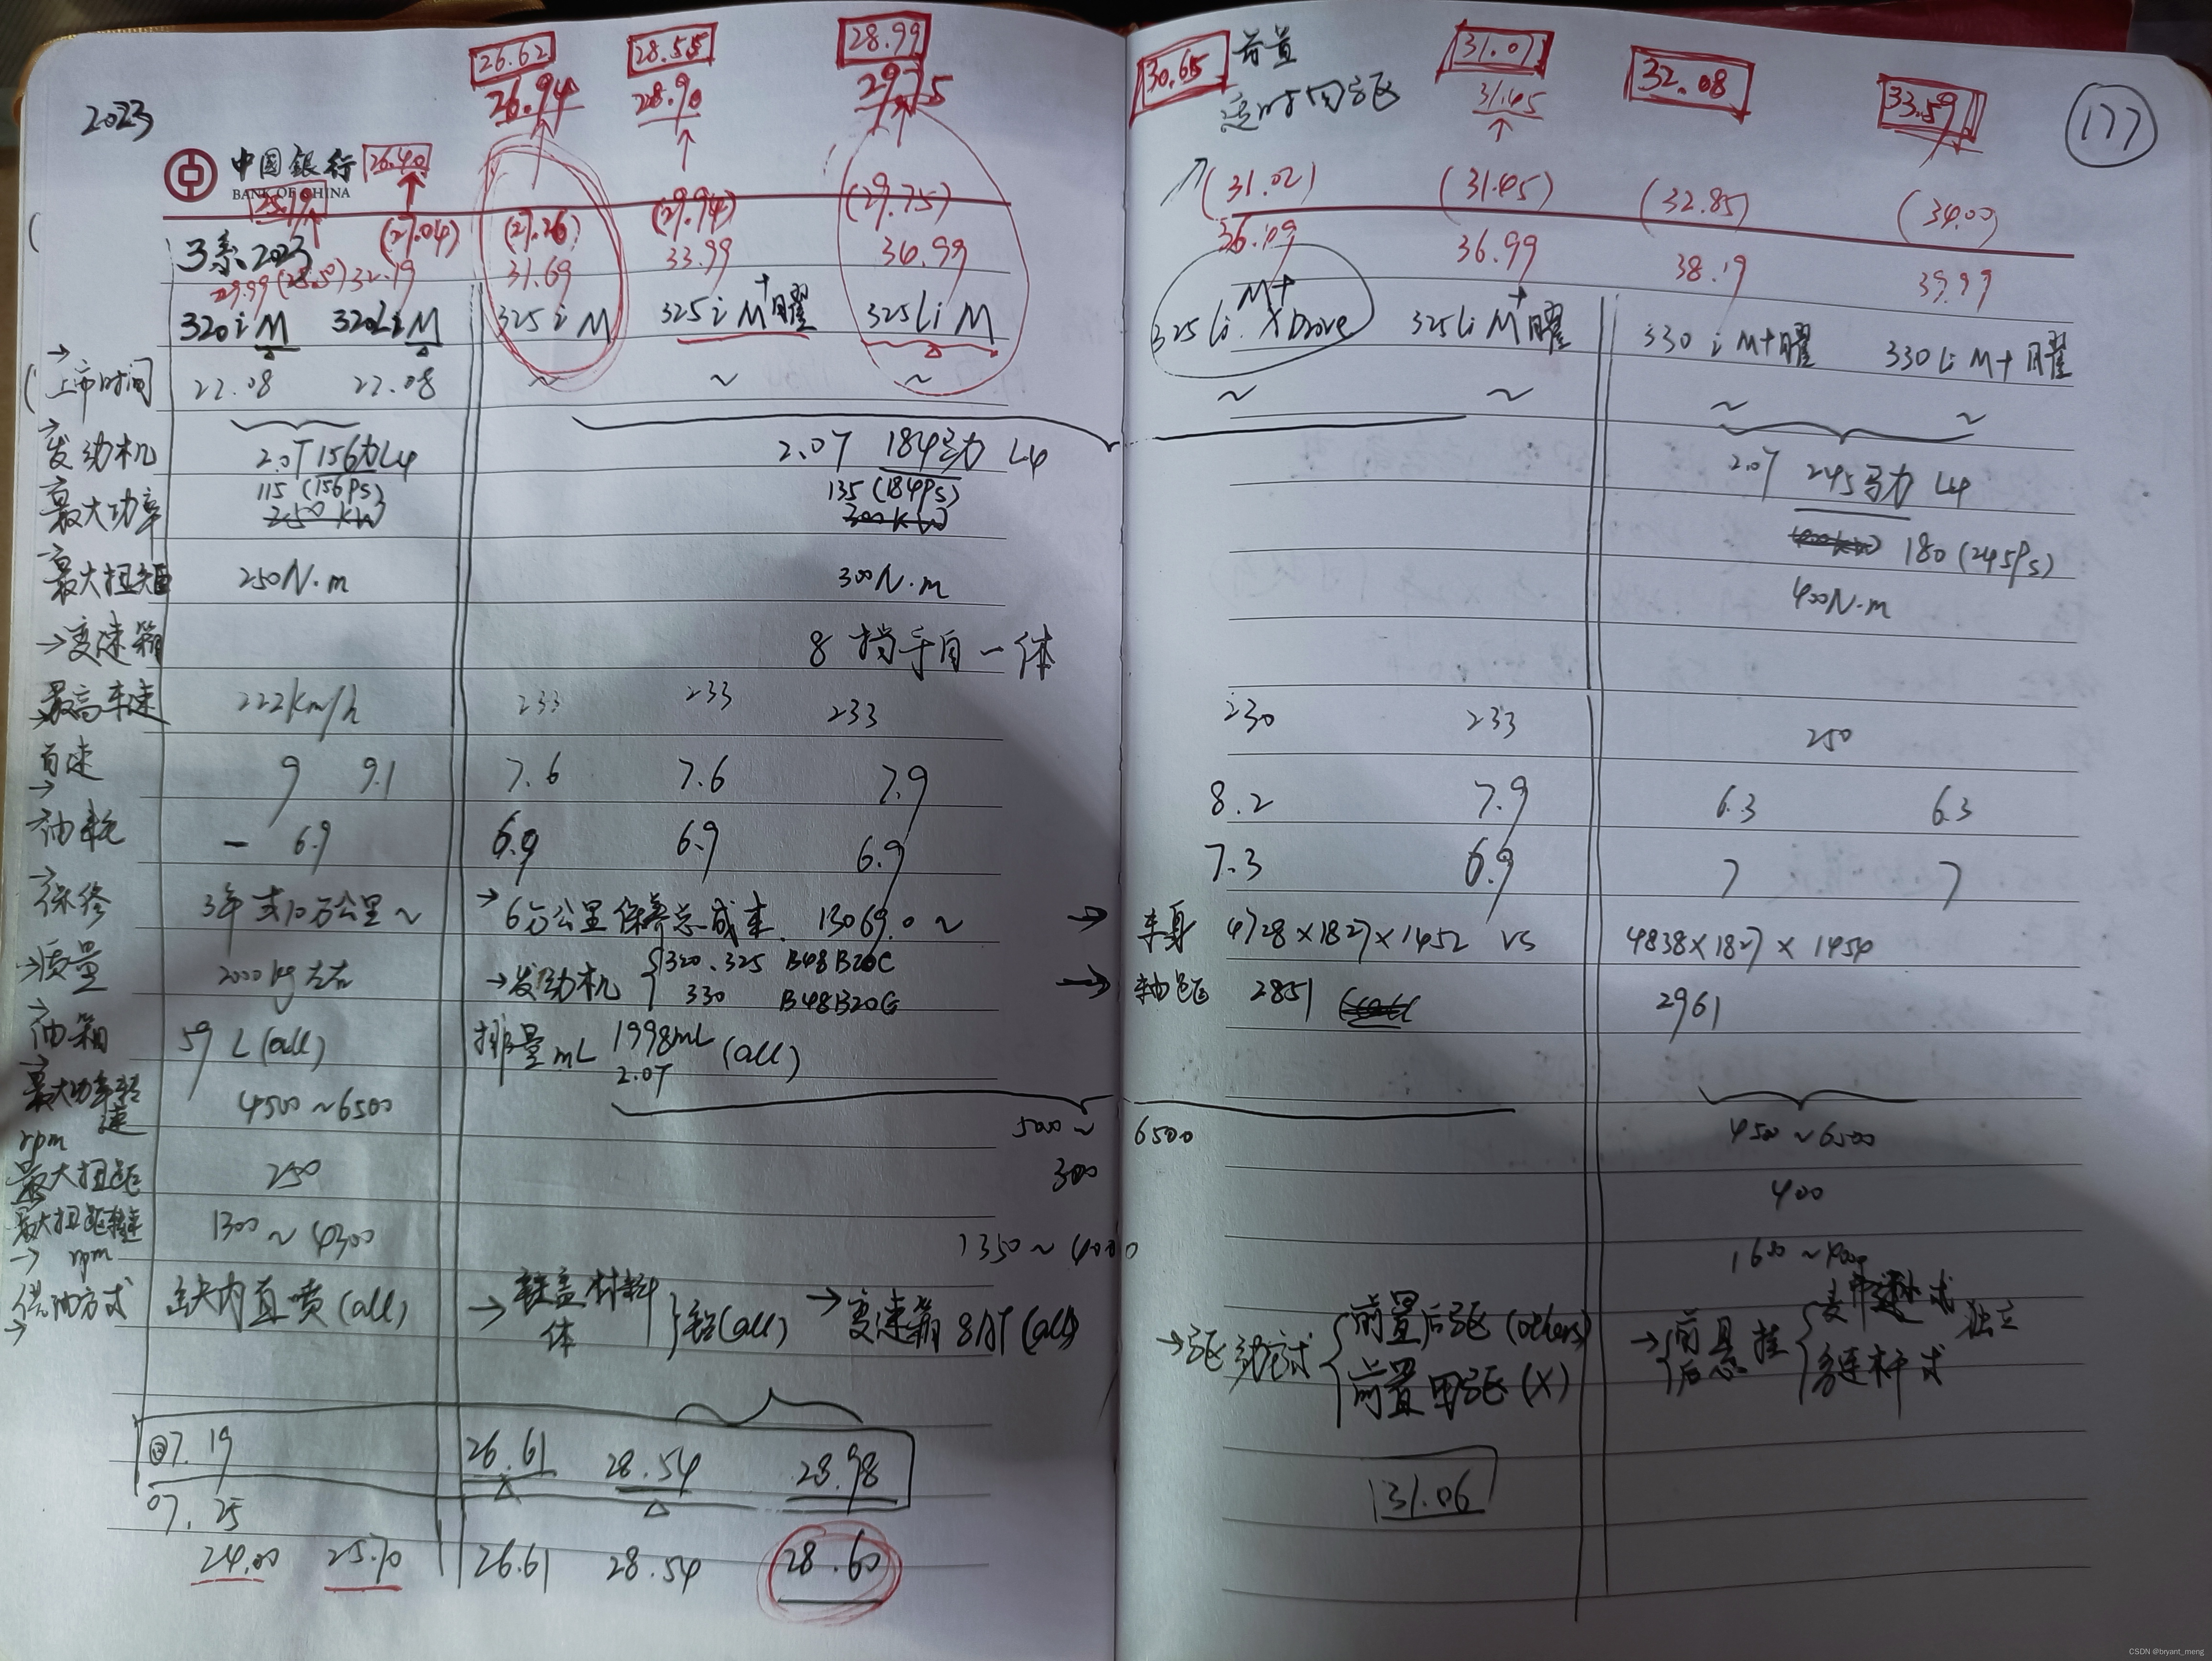 26.62 28.55 28.99
26.94 28.90 29.75
2023
中国银行 26.40
BANK OF CHINA
25.19
(27.04) (27.26) (29.94) (29.75)
3系 2023
29.99 (28.5) 32.19 31.69 33.99 36.99
320i M 320Li M 325i M 325i M+曜 325Li M
上市时间 22.08 22.08 ~ ~ ~
发动机 2.0T 156力 L4 2.0T 184马力 L4
最大功率 115 (156Ps) 135 (184Ps)
250 kW 300 kW
最大扭矩 250N·m 300N·m
变速箱 8挡手自一体
最高车速 222km/h 233 233 233
百速 9 9.1 7.6 7.6 7.9
油耗 - 6.9 6.9 6.9 6.9
保修 3年或10万公里 ~ →6万公里保养总成本 13069.0 ~
→质量 2000kg左右 →发动机 { 320.325 B48B20C
330 B48B20G
油箱 59 L (all) 排量mL 1998mL (all)
2.0T
最大功率转速 rpm 4500~6500 5000~6500
最大扭距 250 300
最大扭距转速 → rpm 1300~4300 1350~4000
供油方式 缸内直喷(all) → 缸盖材料 } 铝(all) → 变速箱 8AT (all)
体
07.19 26.61 28.54 28.98
07.25
24.00 25.70 26.61 28.54 28.60
30.65 前置 31.07 32.08 33.59
适时四驱 31.45
177
(31.02) (31.45) (32.85) (34.00)
36.09 36.99 38.19 39.99
M+
325Li XDrive 325Li M+曜 330i M+曜 330Li M+曜
~ ~ ~ ~
2.0T 245马力 L4
180 (245Ps)
400N·m
230 233 250
8.2 7.9 6.3 6.3
7.3 6.9 7 7
→ 车身 4728×1827×1452 vs 4838×1827×1454
→ 轴距 2851 2961
4500~6500
400
1600~4000
→驱动方式 { 前置后驱 (others) → { 前悬挂 { 麦弗逊式 独立
前置四驱 (X) 后 多连杆式
31.06
CSDN @bryant_meng